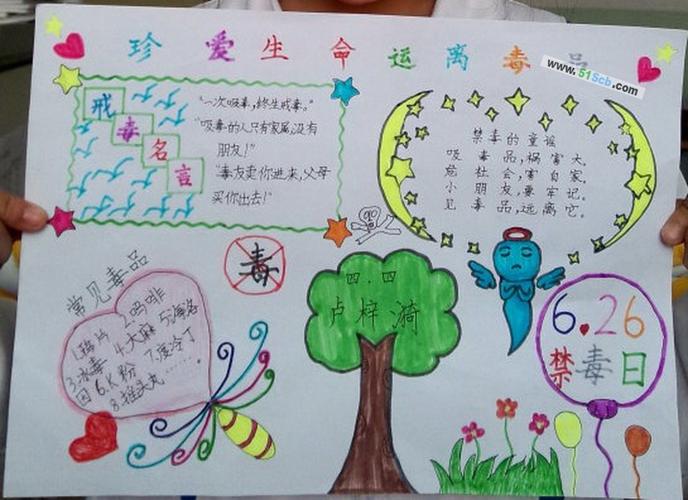 珍爱生命运离毒品
www.51Scb.com
戒毒名言
"一次吸毒,终生戒毒。"
"吸毒的人只有家属,没有
朋友!"
"毒友卖你进来,父母
买你出去!"
禁毒的童谣
吸毒品,祸害大,
危社会,害自家,
小朋友,要牢记。
见毒品,远离它。
毒
常见毒品
1.鸦片 2.吗啡
3.冰毒 4.大麻 5.海洛
因 6.K粉 7.度冷丁
8.摇头丸......
四.四
卢梓漪
6.26
禁毒日